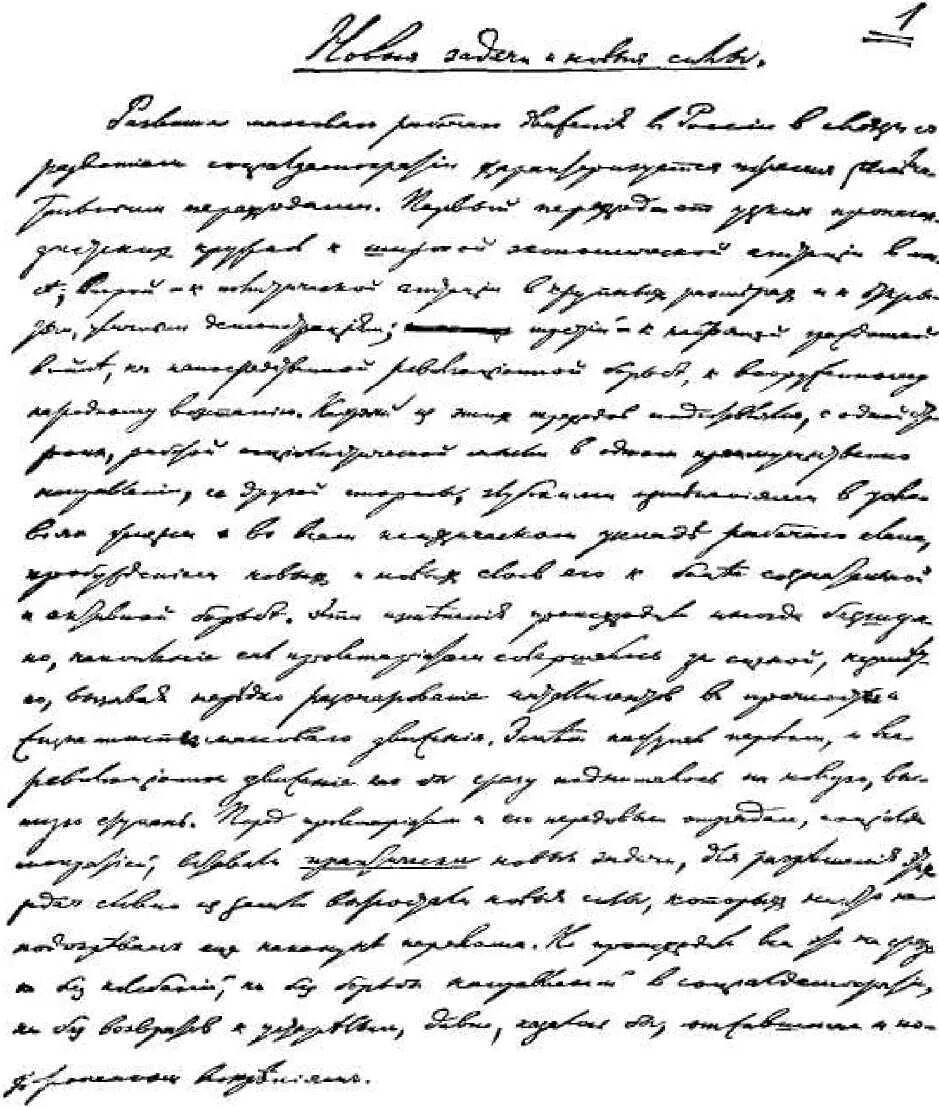 1
Новыя задачи и новыя силы.
Развитие массоваго рабочаго движенія в Россіи в связи с
развитіем социалдемократіи характеризуется тремя замѣча-
тельными переходами. Первый переход – от узких пропаган-
дистских кружков к широкой экономической агитаціи в мас-
сѣ; второй – к политической агитаціи в крупных размѣрах и к откры-
тым, уличным демонстраціям; третій – к настоящей гражданской
войнѣ, к непосредственной революціонной борьбѣ, к вооруженному
народному возстанію. Каждый из этих переходов подготовлялся, с одной сто-
роны, работой соціалистической мысли в одном преимущественно
направленіи, с другой стороны, глубокими измѣненіями в усло-
віях жизни и во всем психическом укладѣ рабочаго класса,
пробужденіем новых и новых слоев его к болѣе сознательной
и активной борьбѣ. Эти измѣненія происходили иногда безшум-
но, накопленіе сил пролетаріатом совершалось за сценой, незамѣт-
но, вызывая нерѣдко разочарованіе интеллигентов в прочности и
жизненности массоваго движенія. Затѣм наступал перелом, и все
революціонное движеніе как бы сразу поднималось на новую, выс-
шую ступень. Перед пролетаріатом и его передовым отрядом, соціалде-
мократіей, вставали практически новыя задачи, для разрѣшенія этих
задач словно из земли выростали новыя силы, которых никто не
подозрѣвал еще наканунѣ перелома. Но происходило все это не сразу,
не без колебаній, не без борьбы направленій в социалдемократіи,
не без возвратов к устарѣлым, давно, казалось бы, отжившим и по-
хороненным воззрѣніям.